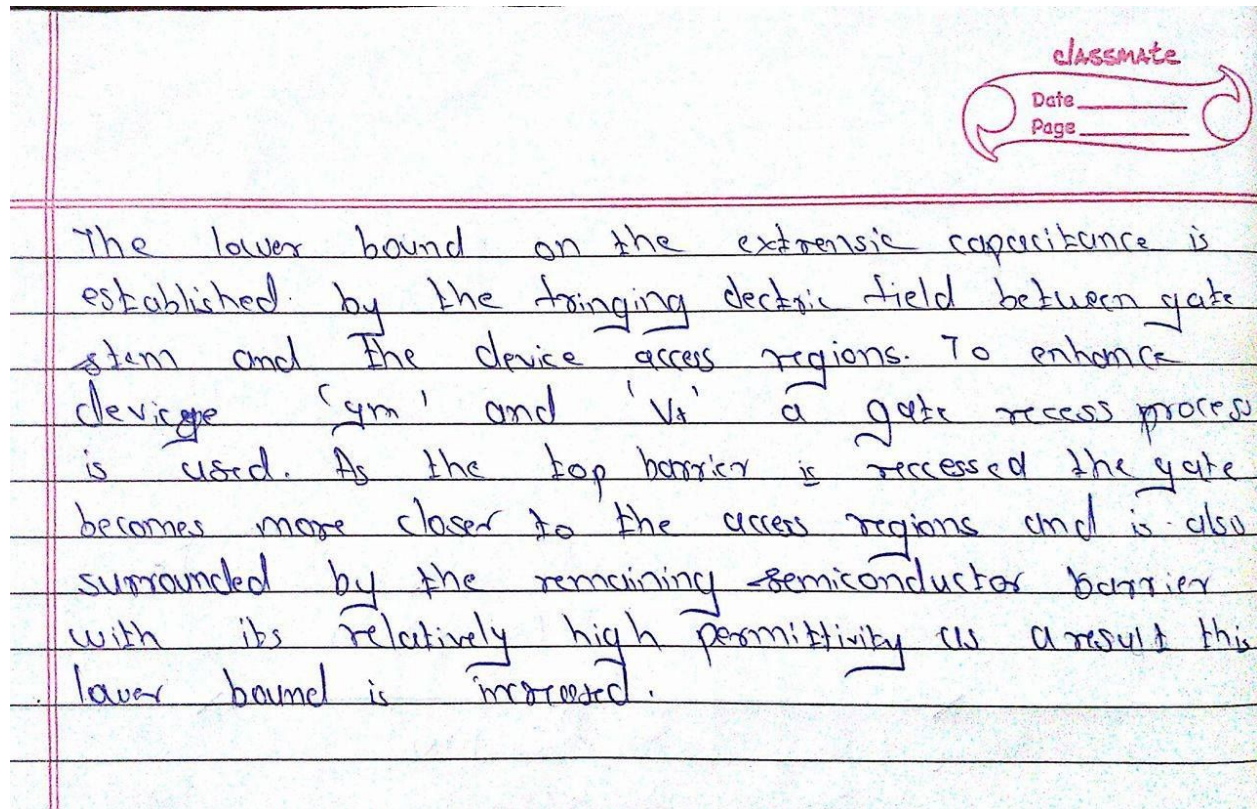 classmate
Date
Page
The lower bound on the extrensic capacitance is
established by the fringing electric field between gate
stem and the device access regions. To enhance
device 'gm' and 'Vt' a gate recess process
is used. As the top barrier is reccessed the gate
becomes more closer to the access regions and is also
surrounded by the remaining semiconductor barrier
with its relatively high permittivity as a result this
lower bound is increased.